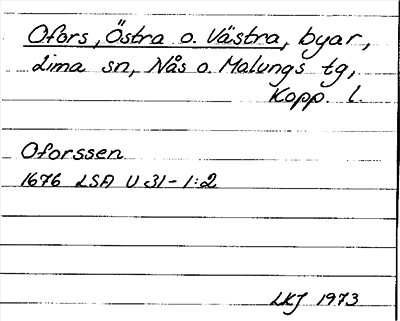 Ofors, Östra o. Västra, byar,
Lima sn, Nås o. Malungs tg,
Kopp. l.
Oforssen
1676 LSA U 31-1:2
LKJ 1973